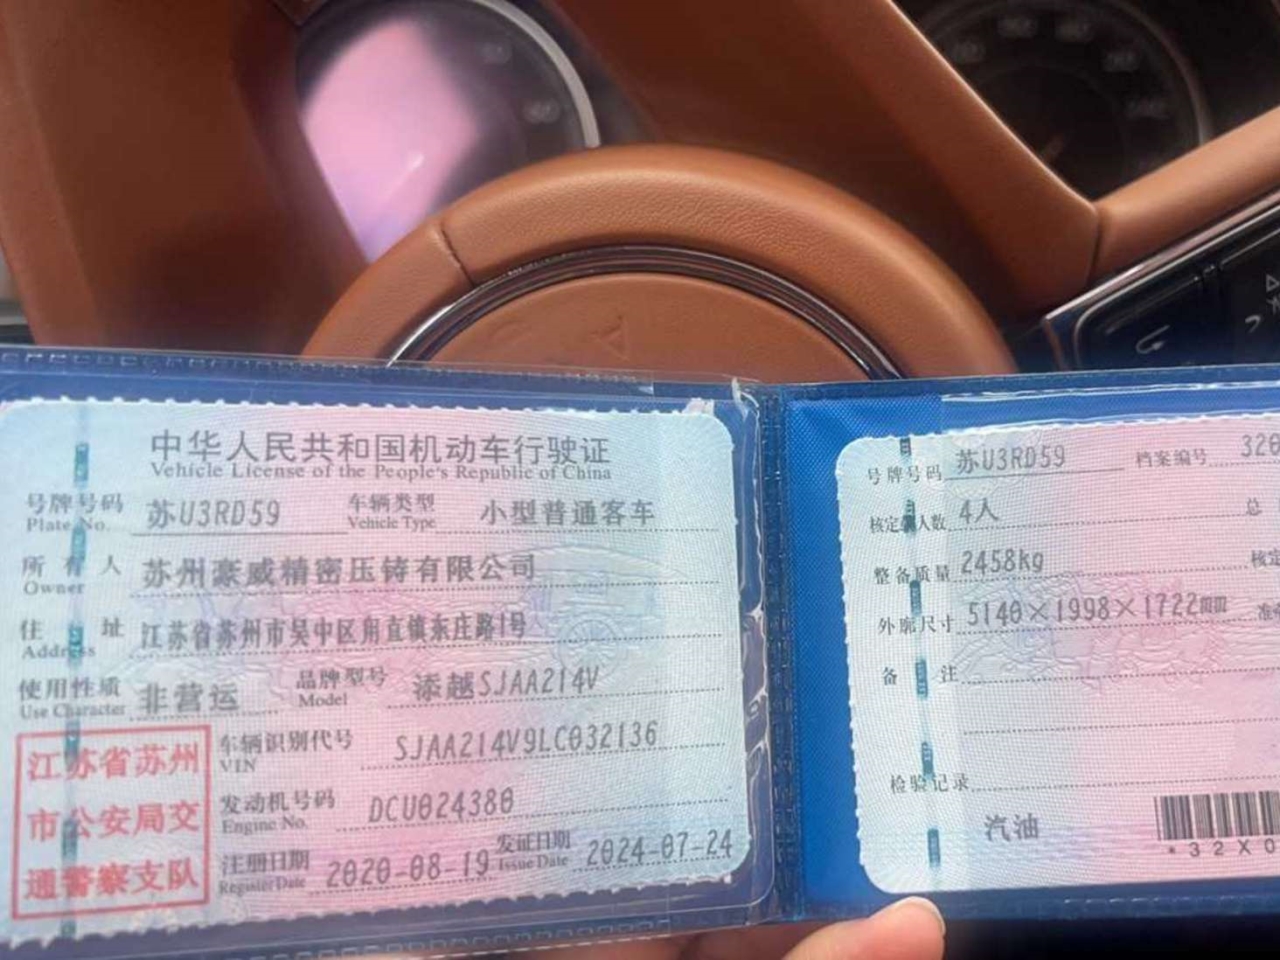 中华人民共和国机动车行驶证
Vehicle License of the People's Republic of China
号牌号码 苏U3RD59 车辆类型 小型普通客车
Plate No. Vehicle Type
所有人 苏州豪威精密压铸有限公司
Owner
住址 江苏省苏州市吴中区甪直镇东庄路1号
Address
使用性质 非营运 品牌型号 添越SJAA214V
Use Character Model
江苏省苏州
市公安局交
通警察支队
车辆识别代号 SJAA214V9LC032136
VIN
发动机号码 DCU024380
Engine No.
注册日期 2020-08-19 发证日期 2024-07-24
Register Date Issue Date
号牌号码 苏U3RD59 档案编号 320
核定载人数 4人 总
整备质量 2458kg 核定
外廓尺寸 5140×1998×1722mm 准
备注
检验记录
汽油
*32X0